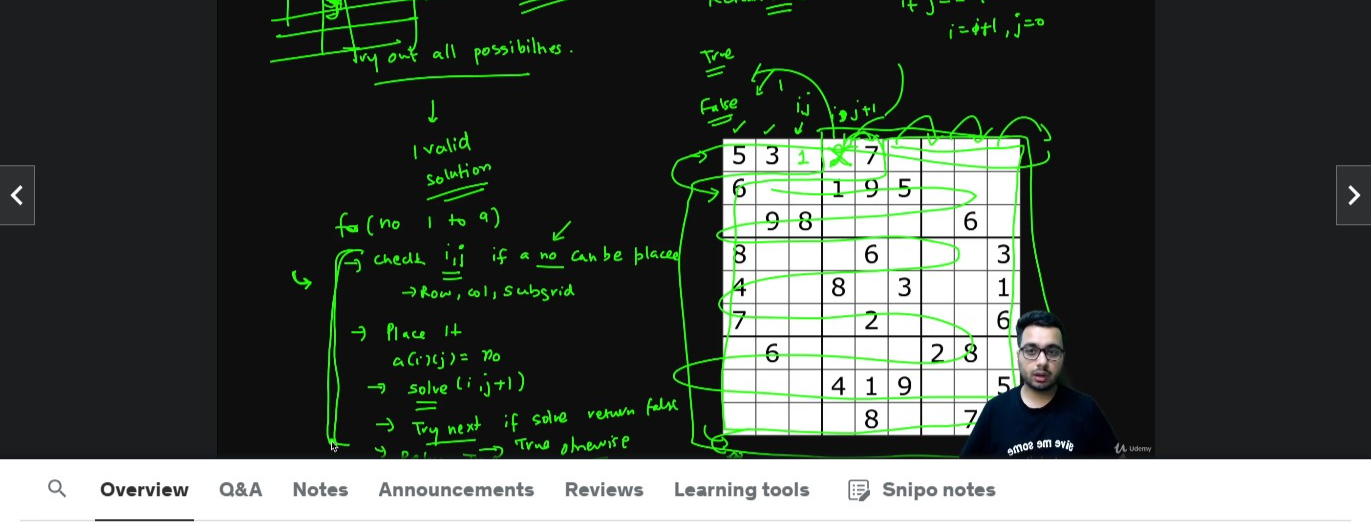 Try out all possibilties.
1 valid
solution
for (no 1 to 9)
→ check i,j if a no can be placed
→ Row, col, subgrid
→ Place it
a(i)(j) = no
→ solve (i,j+1)
→ Try next if solve return false
→ True otherwise
i=i+1, j=0
True
False
1
ij
i,j+1
5 3 1 7
6 1 9 5
9 8 6
8 6 3
4 8 3 1
7 2 6
6 2 8
4 1 9 5
8 7
Give me some
Udemy
Overview
Q&A
Notes
Announcements
Reviews
Learning tools
Snipo notes